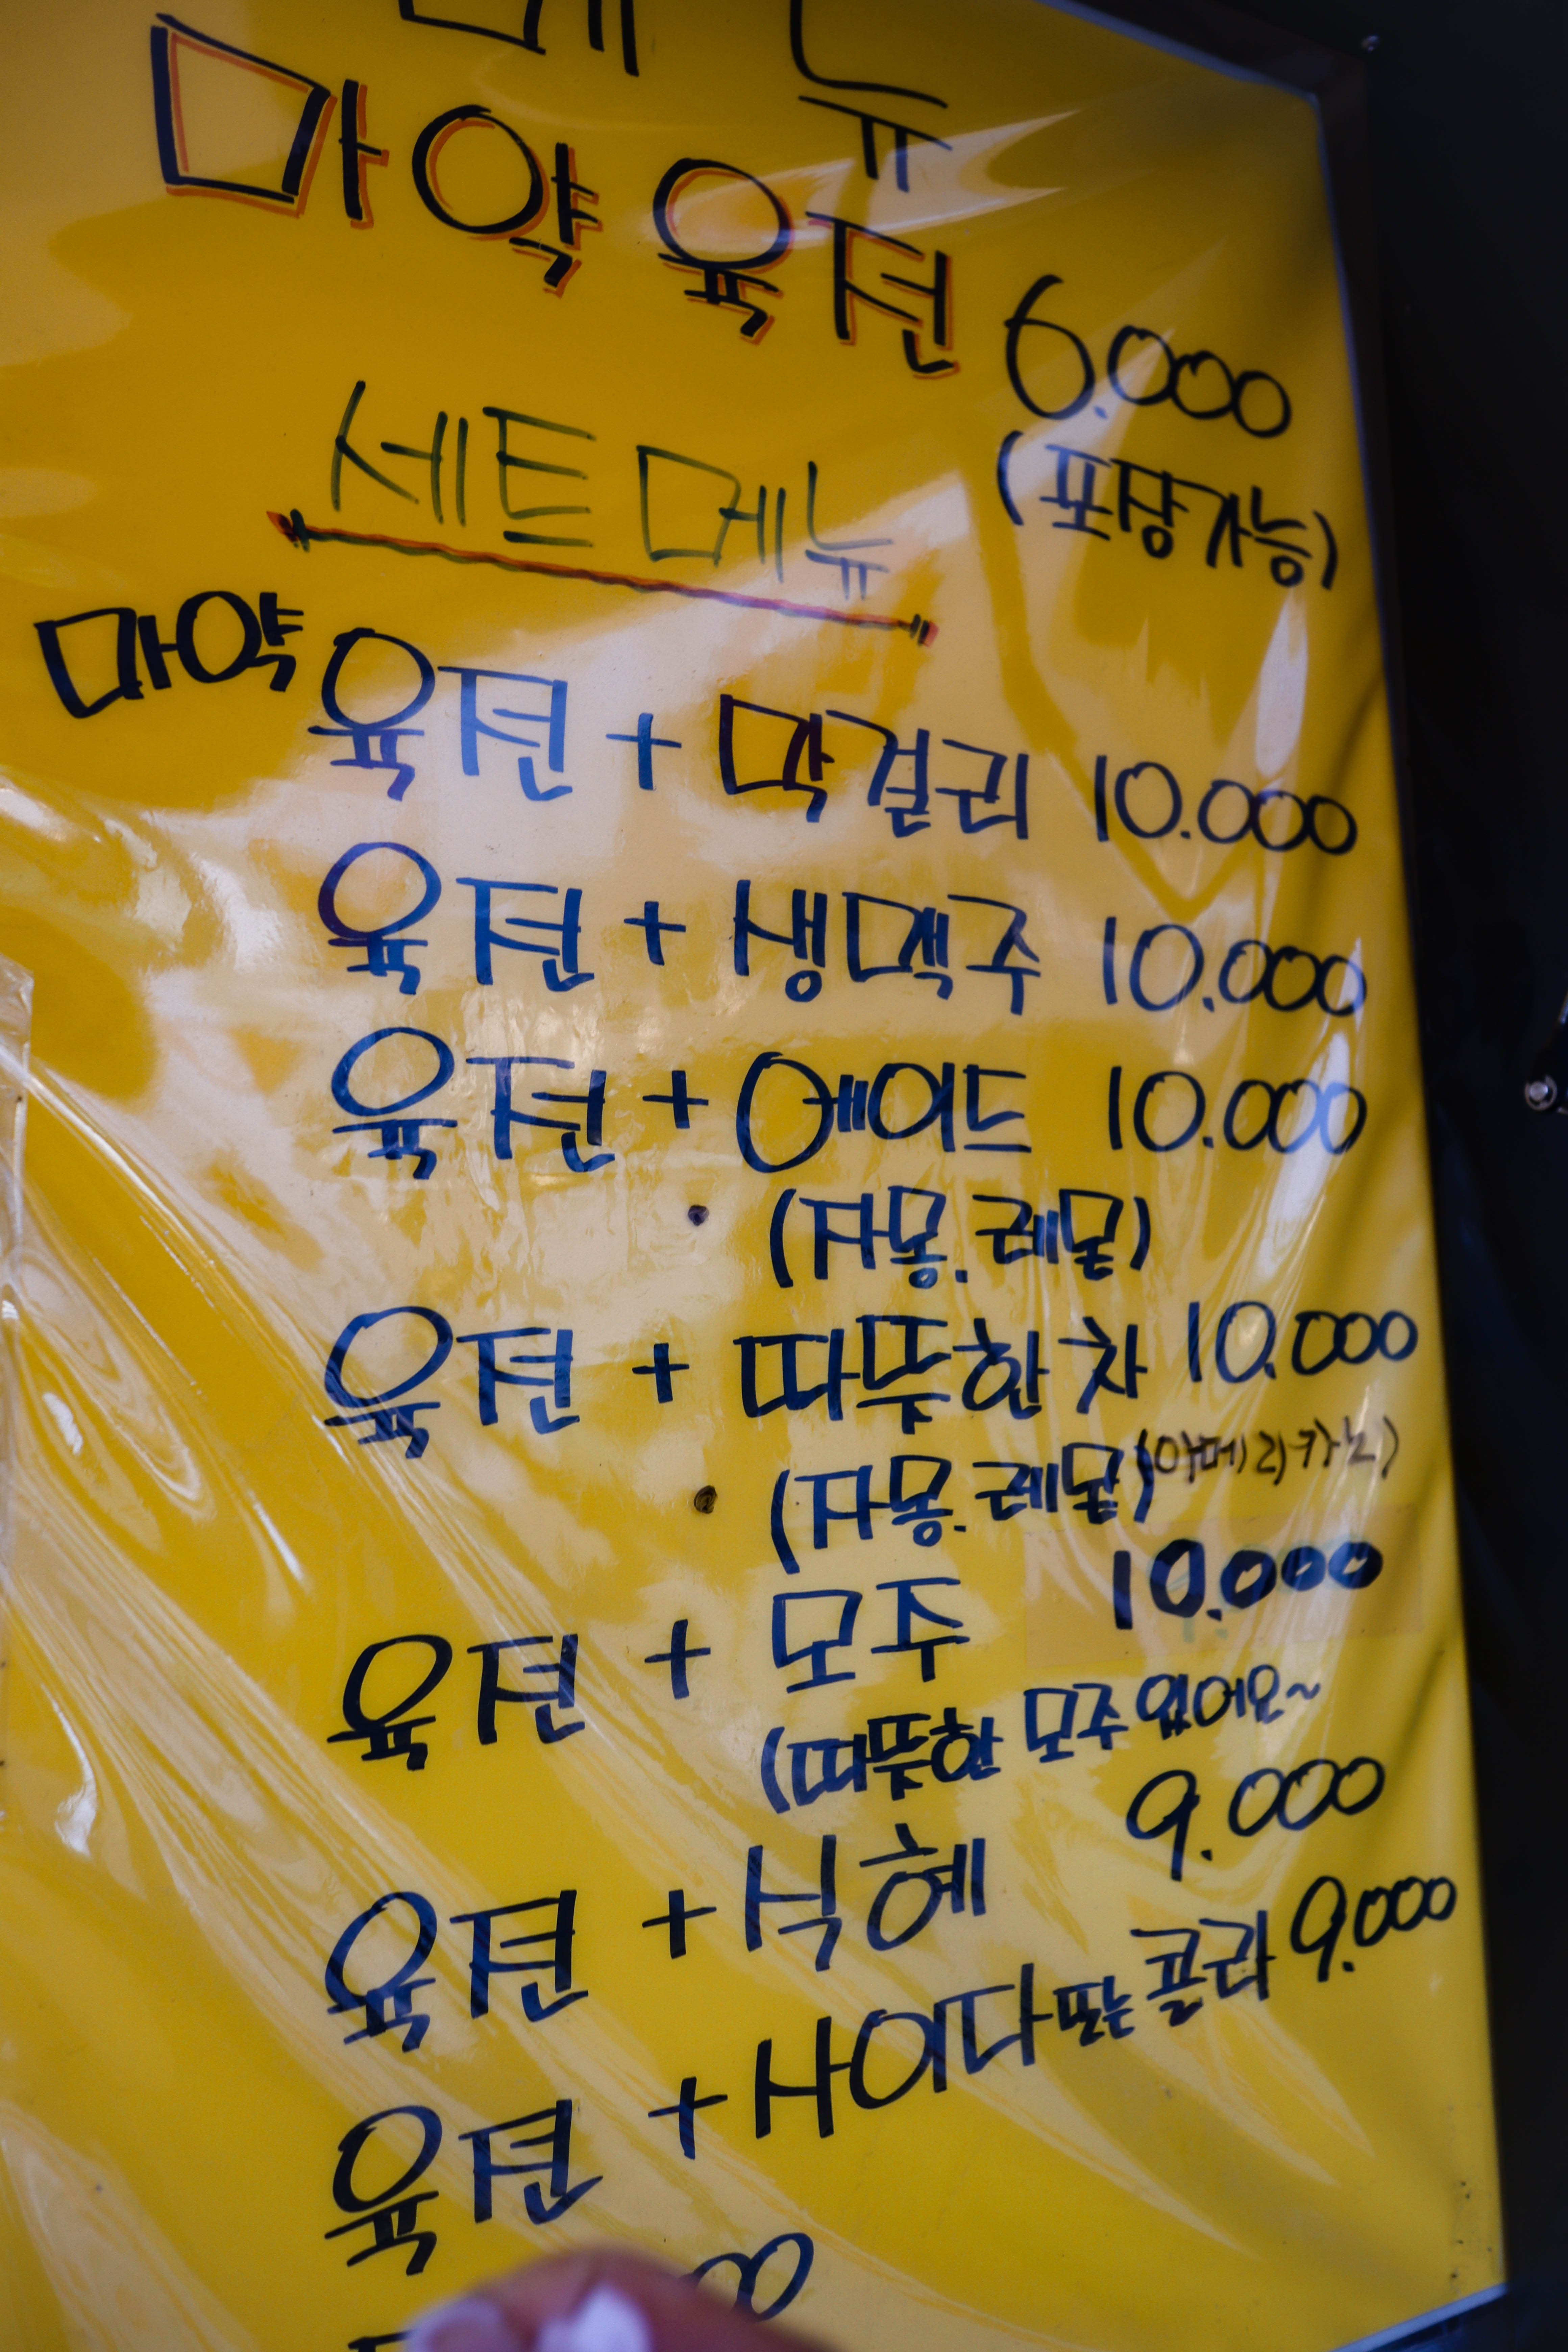 메뉴
마약육전 6.000
(포장가능)
세트메뉴
마약육전 + 막걸리 10.000
육전 + 생맥주 10.000
육전 + 에이드 10.000
(자몽.레몬)
육전 + 따뜻한차 10.000
(자몽.레몬)(아메리카노)
육전 + 모주 10.000
(따뜻한 모주있어요~
육전 + 식혜 9.000
육전 + 사이다또는콜라 9.000